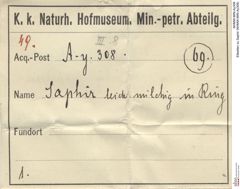 K. k. Naturh. Hofmuseum. Min.-petr. Abteilg.
49.
III. 8
Acq.-Post A-y. 308.
69.
Name Saphir leich milchig in Ring
Fundort
1.